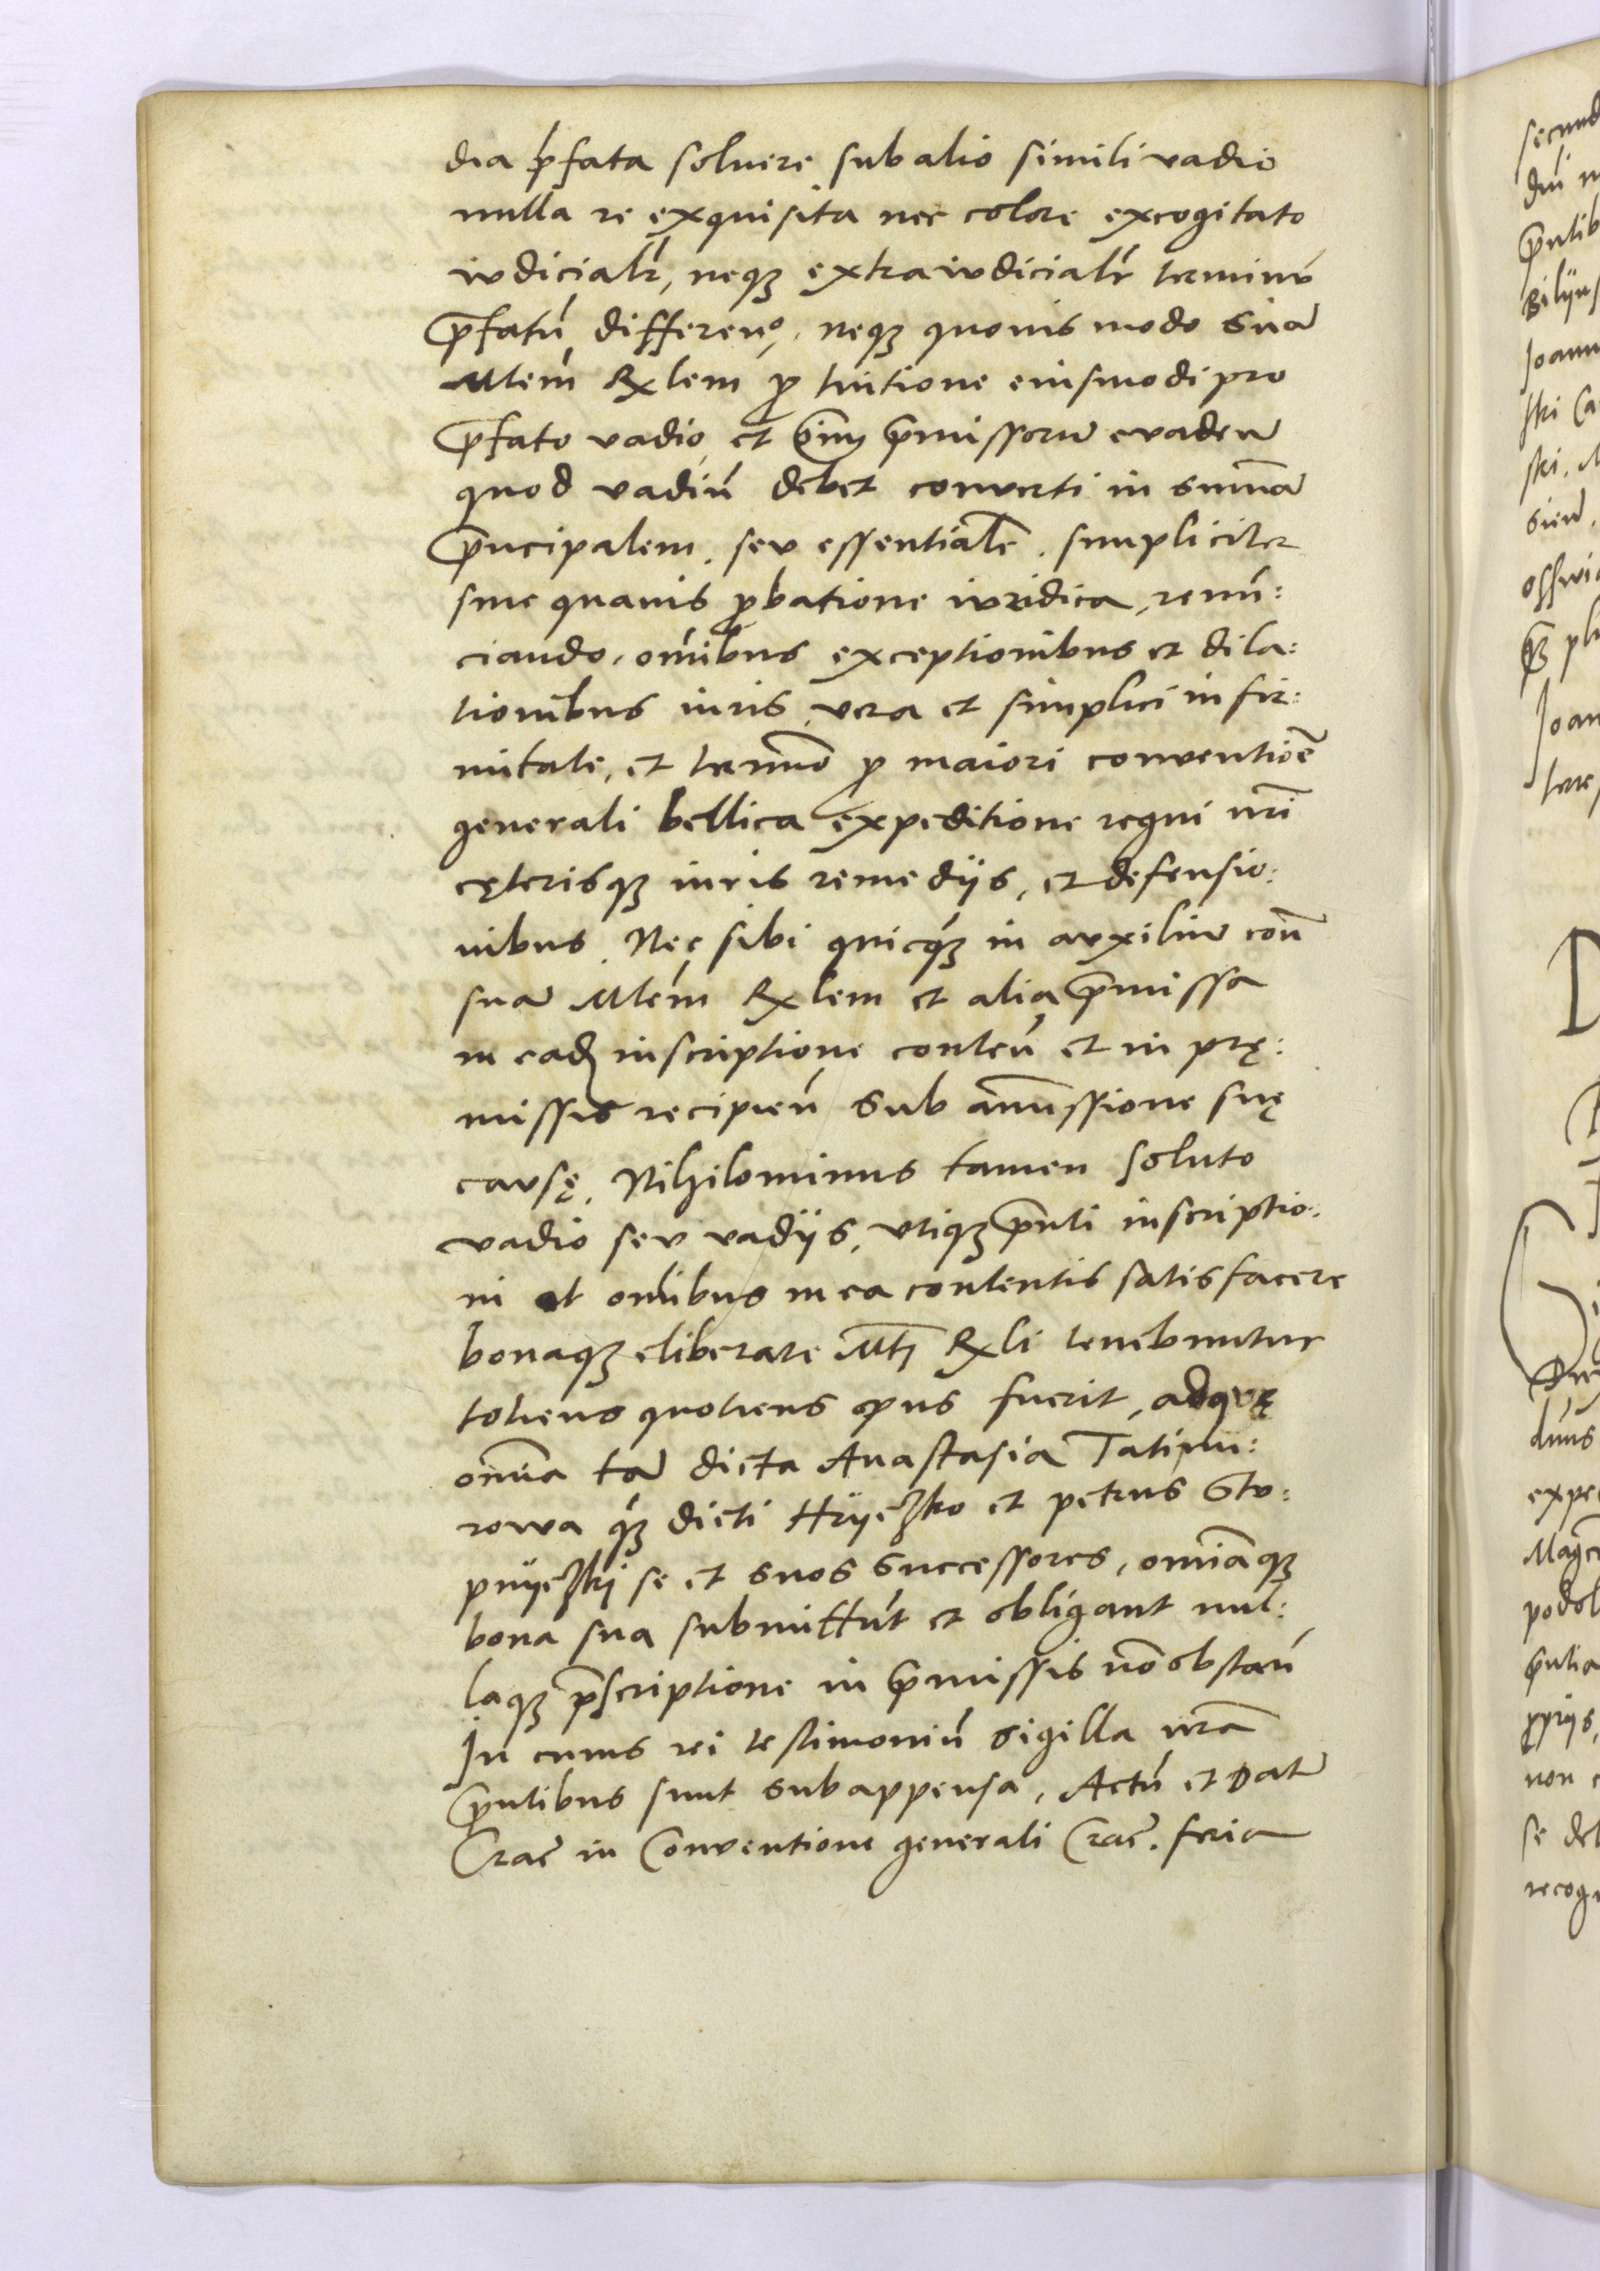 dia p̄fata soluere sub alio simili vadio
nulla re exquisita nec colore excogitato
iudicialr̄, neqꝫ extraiudicialr̄ terminū
p̄fatū differenō, neqꝫ quouis modo suā
Mtem̄ Rx̄lem ꝑ tuitione eiusmodi pro
p̄fato vadio, et p̄missorū evadeń
quod vadiū debet converti in sum̄ā
p̄ncipalem, seu essentialē, simpliciter
sine quauis ꝓbatione iuridica, renū:
ciando, om̄ibus exceptionibus et dila:
tionibus iuris, vera et simplici infir:
mitate, et termīo ꝑ maiori conventiōe
generali bellica expeditione regni nr̄i
cęterisqꝫ iuris remediis, et defensio:
nibus. Nec sibi quicq̄ꝫ in auxiliū con̄
suā Mtem̄ Rx̄lem et alia p̄missa
in eadꝫ inscriptione conteń et in prę:
missis recipień sub am̄issione suę
causę. Nihilominus tamen soluto
vadio seu vadijs, vtiqꝫ p̄nti inscriptio:
ni et om̄ibus in ea contentis satisfacere
bonaqꝫ eliberare Mtj̄ Rx̄li tenebuntur
totiens quotiens opus fuerit, ad quę
om̄ia tā dicta Anastasia Tatipu:
rowa q̄ꝫ dicti Hrijczko et petrus Stu:
pnijczkij se et suos successores, om̄iaqꝫ
bona sua submittūt et obligant nul:
laqꝫ p̄scriptione in p̄missis nō obstań
In cuius rei testimoniū sigilla nr̄a
p̄ntibus sunt subappensa. Actū et Datū
Crac̄ in Conventione generali Crac̄. feria